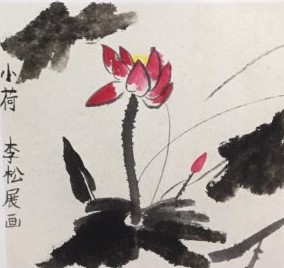 小荷
李松展画